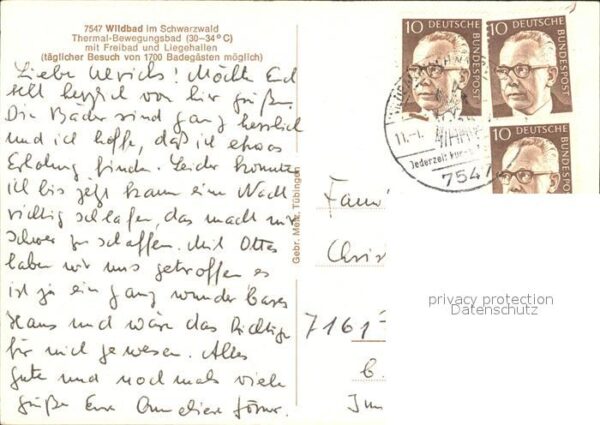 7547 Wildbad im Schwarzwald
Thermal-Bewegungsbad (30–34° C)
mit Freibad und Liegehallen
(täglicher Besuch von 1700 Badegästen möglich)
Liebe Ulrichs! Möchte Euch
sehr herzlich von hier grüßen.
Die Bäder sind ganz herrlich
und ich hoffe, daß ich etwas
Erholung finde. Leider konnte
ich bis jetzt kaum eine Nacht
richtig schlafen, das macht mir
schwer zu schaffen. Mit Ottos
haben wir uns getroffen es
ist ja ein ganz wunderbares
Haus und wäre das Richtige
für mich gewesen. Alles
Gute und nochmals viele
Grüße Eure Anneliese
Gebr. Metz, Tübingen
10 DEUTSCHE BUNDESPOST
10 DEUTSCHE BUNDESPOST
10 DEUTSCHE BUNDESPOST
Jederzeit
7547
Fam
Christ
7161
privacy protection
Datenschutz